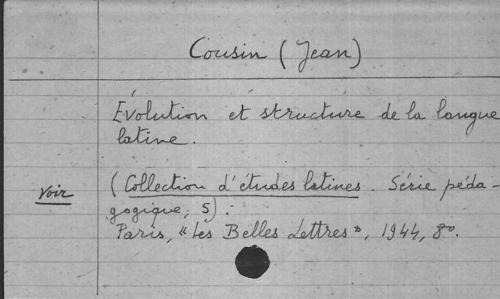 Cousin (Jean)
Évolution et structure de la langue
latine.
voir
(Collection d'études latines. Série péda-
gogique, 5).
Paris, "Les Belles Lettres", 1944, 8º.